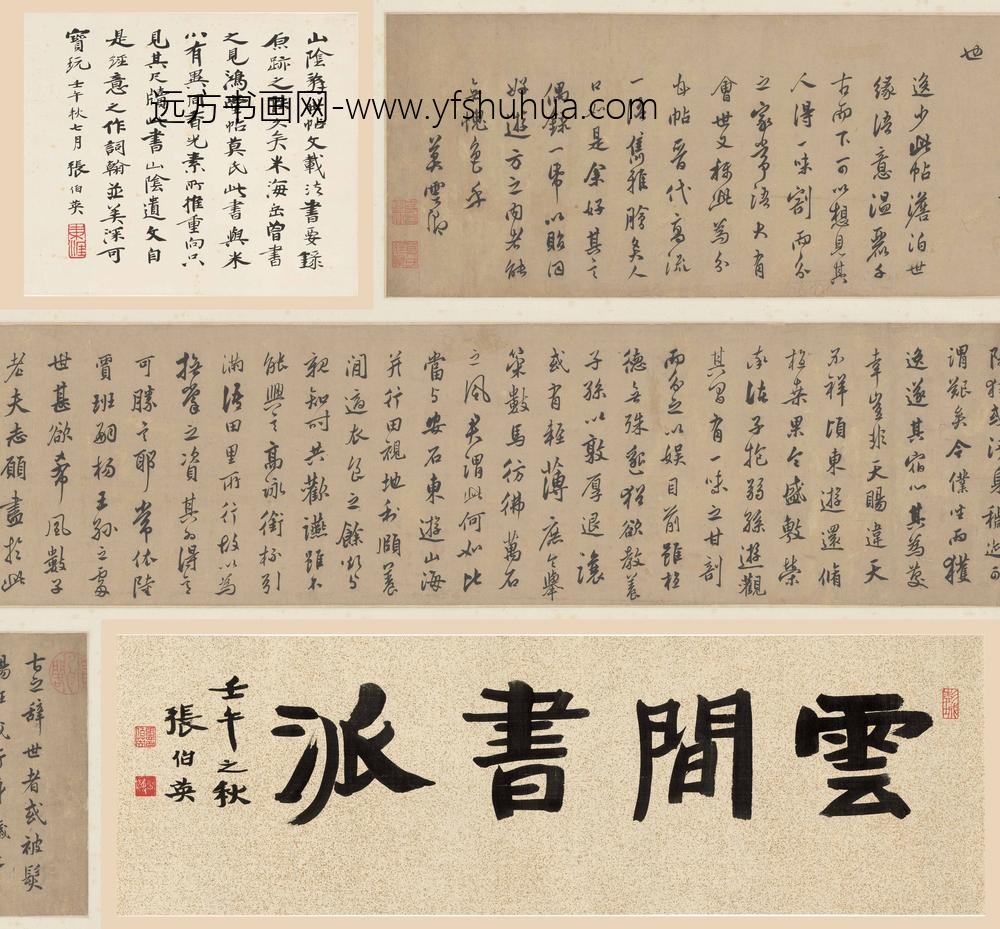 也
逸少此帖澹泊世
緣語意溫麗千
古而下可以想見其
人得一味割而分
之家常語大有
會世又稱此為分
甘帖晉代高流
一種雋雅膾炙人
口是余好其言
偶錄一帋以貽同
好遊方之內者能
無愧色乎
莫雲卿
山陰辭世帖文載法書要錄
原跡之軼久矣米海岳曾書
之見鴻堂帖莫氏此書與米
小有異同香光素所推重向只
見其尺牘此書山陰遺文自
是經意之作詞翰並美深可
寶玩 壬午秋七月 張伯英
远方书画网-www.yfshuhua.com
謂艱矣今僕坐而獲
逸遂其宿心其為慶
幸豈非天賜違天
不祥頃東遊還脩
植桑果今盛敷榮
率諸子抱弱孫遊觀
其間有一味之甘割
而分之以娛目前雖植
德無殊邈猶欲教養
子孫以敦厚退讓
或有輕薄庶令舉
策數馬彷彿萬石
之風君謂此何如比
當與安石東遊山海
并行田視地利頤養
閒適衣食之餘欲與
親知時共歡讌雖不
能興言高詠銜杯引
滿語田里所行故以為
撫掌之資其為得意
可勝言耶常依陸
賈班嗣楊王孫之處
世甚欲希風數子
老夫志願盡於此
雲間書派
壬午之秋
張伯英
古之辭世者或被髮